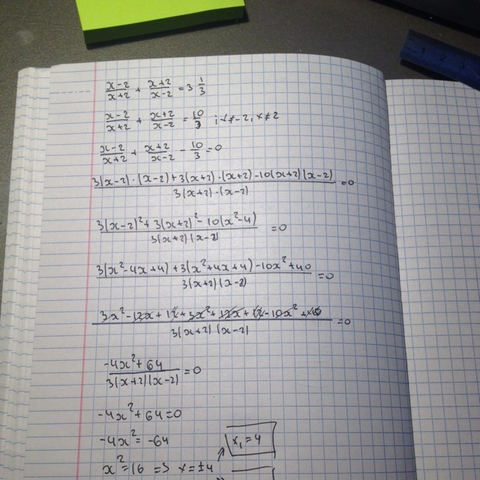 (x-2)/(x+2) + (x+2)/(x-2) = 3 1/3
(x-2)/(x+2) + (x+2)/(x-2) = 10/3 ; x≠-2, x≠2
(x-2)/(x+2) + (x+2)/(x-2) - 10/3 = 0
(3(x-2)·(x-2)+3(x+2)·(x+2)-10(x+2)(x-2))/(3(x+2)·(x-2)) = 0
(3(x-2)²+3(x+2)²-10(x²-4))/(3(x+2)(x-2)) = 0
(3(x²-4x+4)+3(x²+4x+4)-10x²+40)/(3(x+2)(x-2)) = 0
(3x²-12x+12+3x²+12x+12-10x²+40)/(3(x+2)(x-2)) = 0
(-4x²+64)/(3(x+2)(x-2)) = 0
-4x²+64=0
-4x²=-64
x₁=4
x²=16 => x=±4